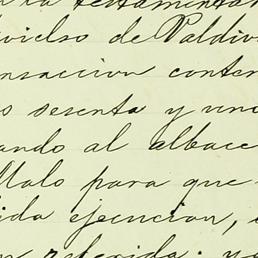 la testamentar
vielso de Valdiv
nsaccion conten
s sesenta y uno
ando al albace
Malo para que
ida ejecucion,
referida; y